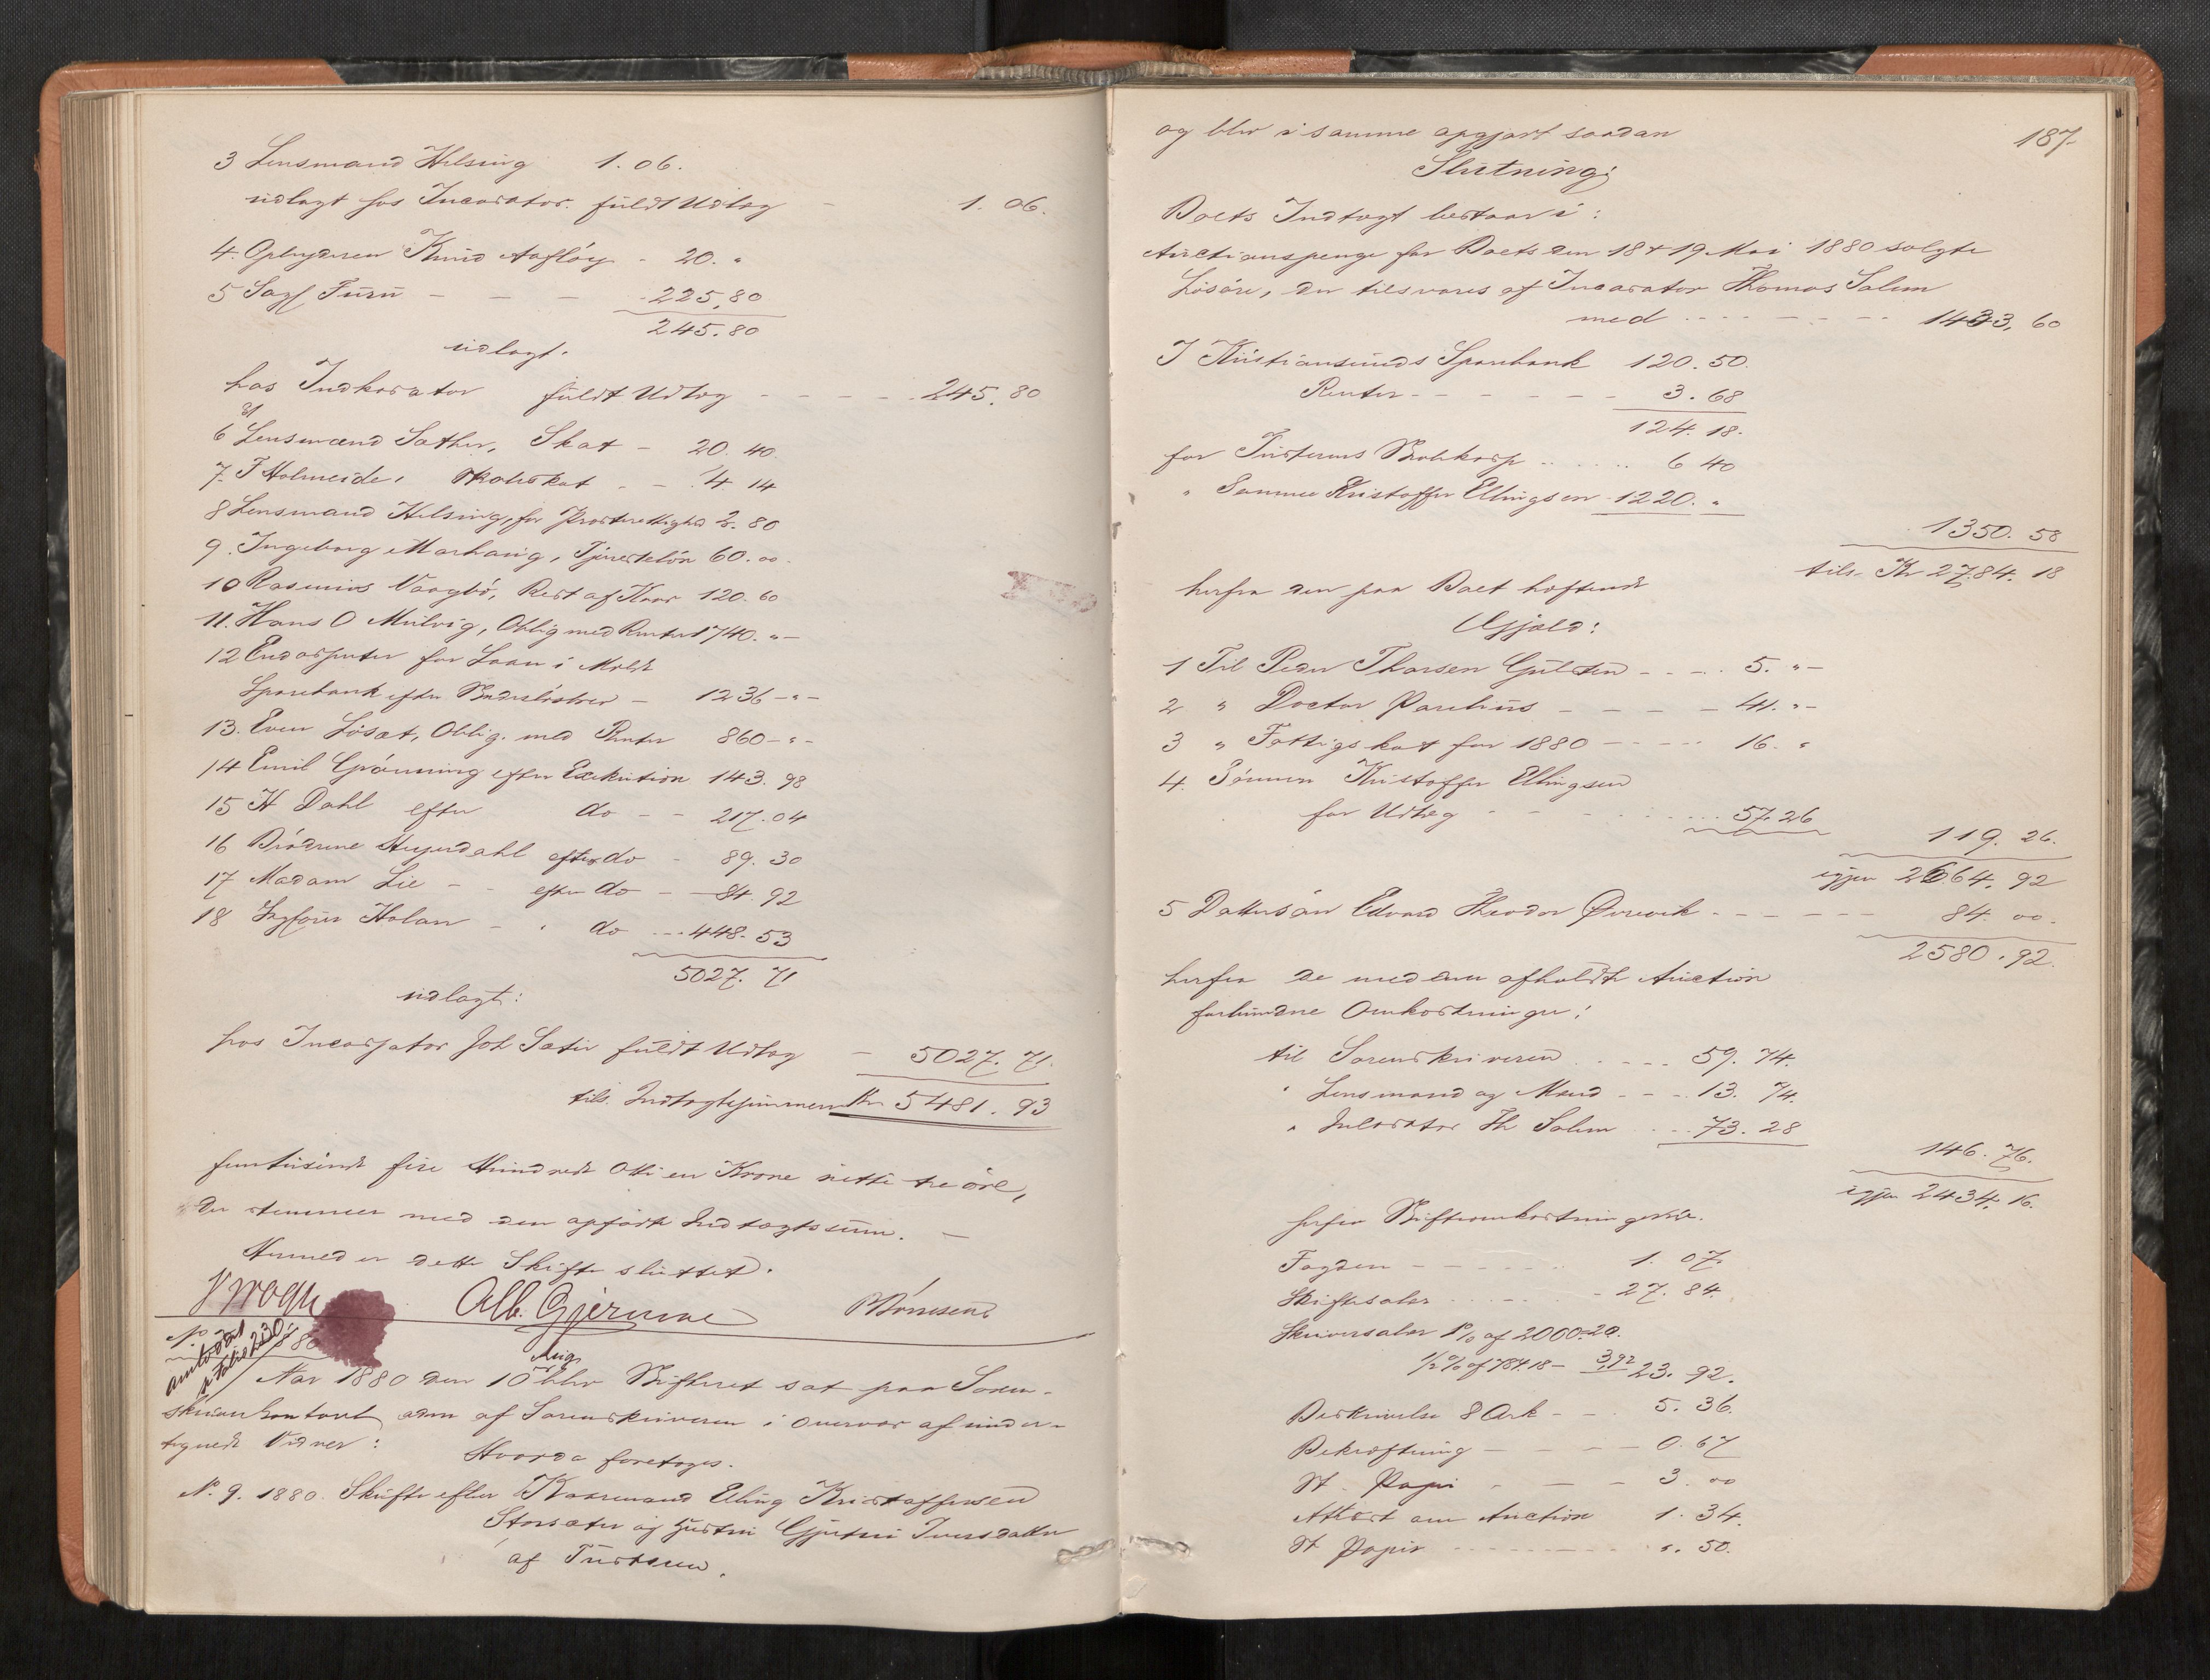 3 Lensmand Helsing 1.06.
udlagt hos Incasator fuldt Udlæg - 1.06.
4. Opbyderen Knud Aafløy - 20. "
5 Sagf Furu - - - 225,80
245.80
udlagt.
hos Indkasator fuldt Udlæg - - - - 245.80
6 Lensmand Sæther, Skat - 20.40
7. J Holmeide, Skoleskat - - 4 14
8 Lensmand Helsing, for 2.80
9. Ingeborg Marhaug, Tjenesteløn 60.00.
10 Rasmus Vaagbø, Rest af Kaar 120.60
11. Hans O Mulvig, Oblig med Renter 1740. "-
12 Endossenter for Laan i Molde
Sparebank efter 1236-"-
13. Even Løset, Oblig. med Renter 860-"-
14 Emil Grønning efter Exekution 143.98
15 H Dahl efter do - - 217.04
16 Brødrene Heyerdahl efter do - 89.30
17 Madam Lie - - efter do - - 84.92
18 Sagfører Holan - " do - - 448.53
5027.71
udlagt:
hos Incassator Joh Sæter fuldt Udlæg - 5027.71.
tils. Indtægtssummen Kr 5481.93
femtusinde fire Hundrede Otti en Krone nitti tre øre,
der stemmer med den opførte Indtægtssum. -
Hermed er dette Skifte sluttet.
Krogh Alb. Gjermoe
No 1880
folio 230
Aar 1880 den 10 Aug blev Skifteret sat paa Soren-
skriverkontoret, adm af Sorenskriveren i Overvær af under-
tegnede Vidner:
Hvorda foretoges.
No. 9. 1880. Skifte efter Kaarmand Elling Kristoffersen
Storsæter og Hustru Gjertru Iversdatter
af Tustern.
187.
og blev i samme opgjort saadan
Slutning;
Boets Indtægt bestaar i:
Auctionspenge for Boets den 18 & 19 Mai 1880 solgte
Løsøre, der tilsvares af Incasator Thomas Salem
med - - - - - - 1433,60
I Kristiansunds Sparebank 120.50.
Renter - - - - - - 3.68
124.18.
for Tusterens 6 40
" Sønnen Kristoffer Ellingsen - 1220. "
1350.58
tils. Kr 2784.18
herfra den paa Boet heftende
Gjæld:
1 Til Peder Tharsen Gulsten - - - - 5. "-
2 " Doctor Parelius - - - - - 41. "-
3 " Fattigskat for 1880 - - - - - 16. "
4. Sønnen Kristoffer Ellingsen
for Udlæg - - - - - - 57.26
119.26.
igjen 2664.92
5 Dattersøn Edvard Theodor Ørnevik - - - - 84.00.
2580.92.
herfra de med den afholdte Auction
forbundne Omkostninger:
til Sorenskriveren - - - - 59.74.
" Lensmand og Mænd - - - 13.74.
" Incasator Th Salem - - - 73.28
146.76.
igjen 2434.16.
herfra Skifteomkostningerne.
Fogden - - - - - - 1.07.
Skiftesaler - - - - - 27.84.
Skriversaler 1% af 2000-20.
1/2 % af 784.18 - 3,92 23.92.
Beskrivelse 8 Ark - - 5.36.
Bekræftning - - - - - 0.67
St. Papir - - - - 3.00
Attest om Auction 1.34.
St Papir - - - - - - - - ". 50.